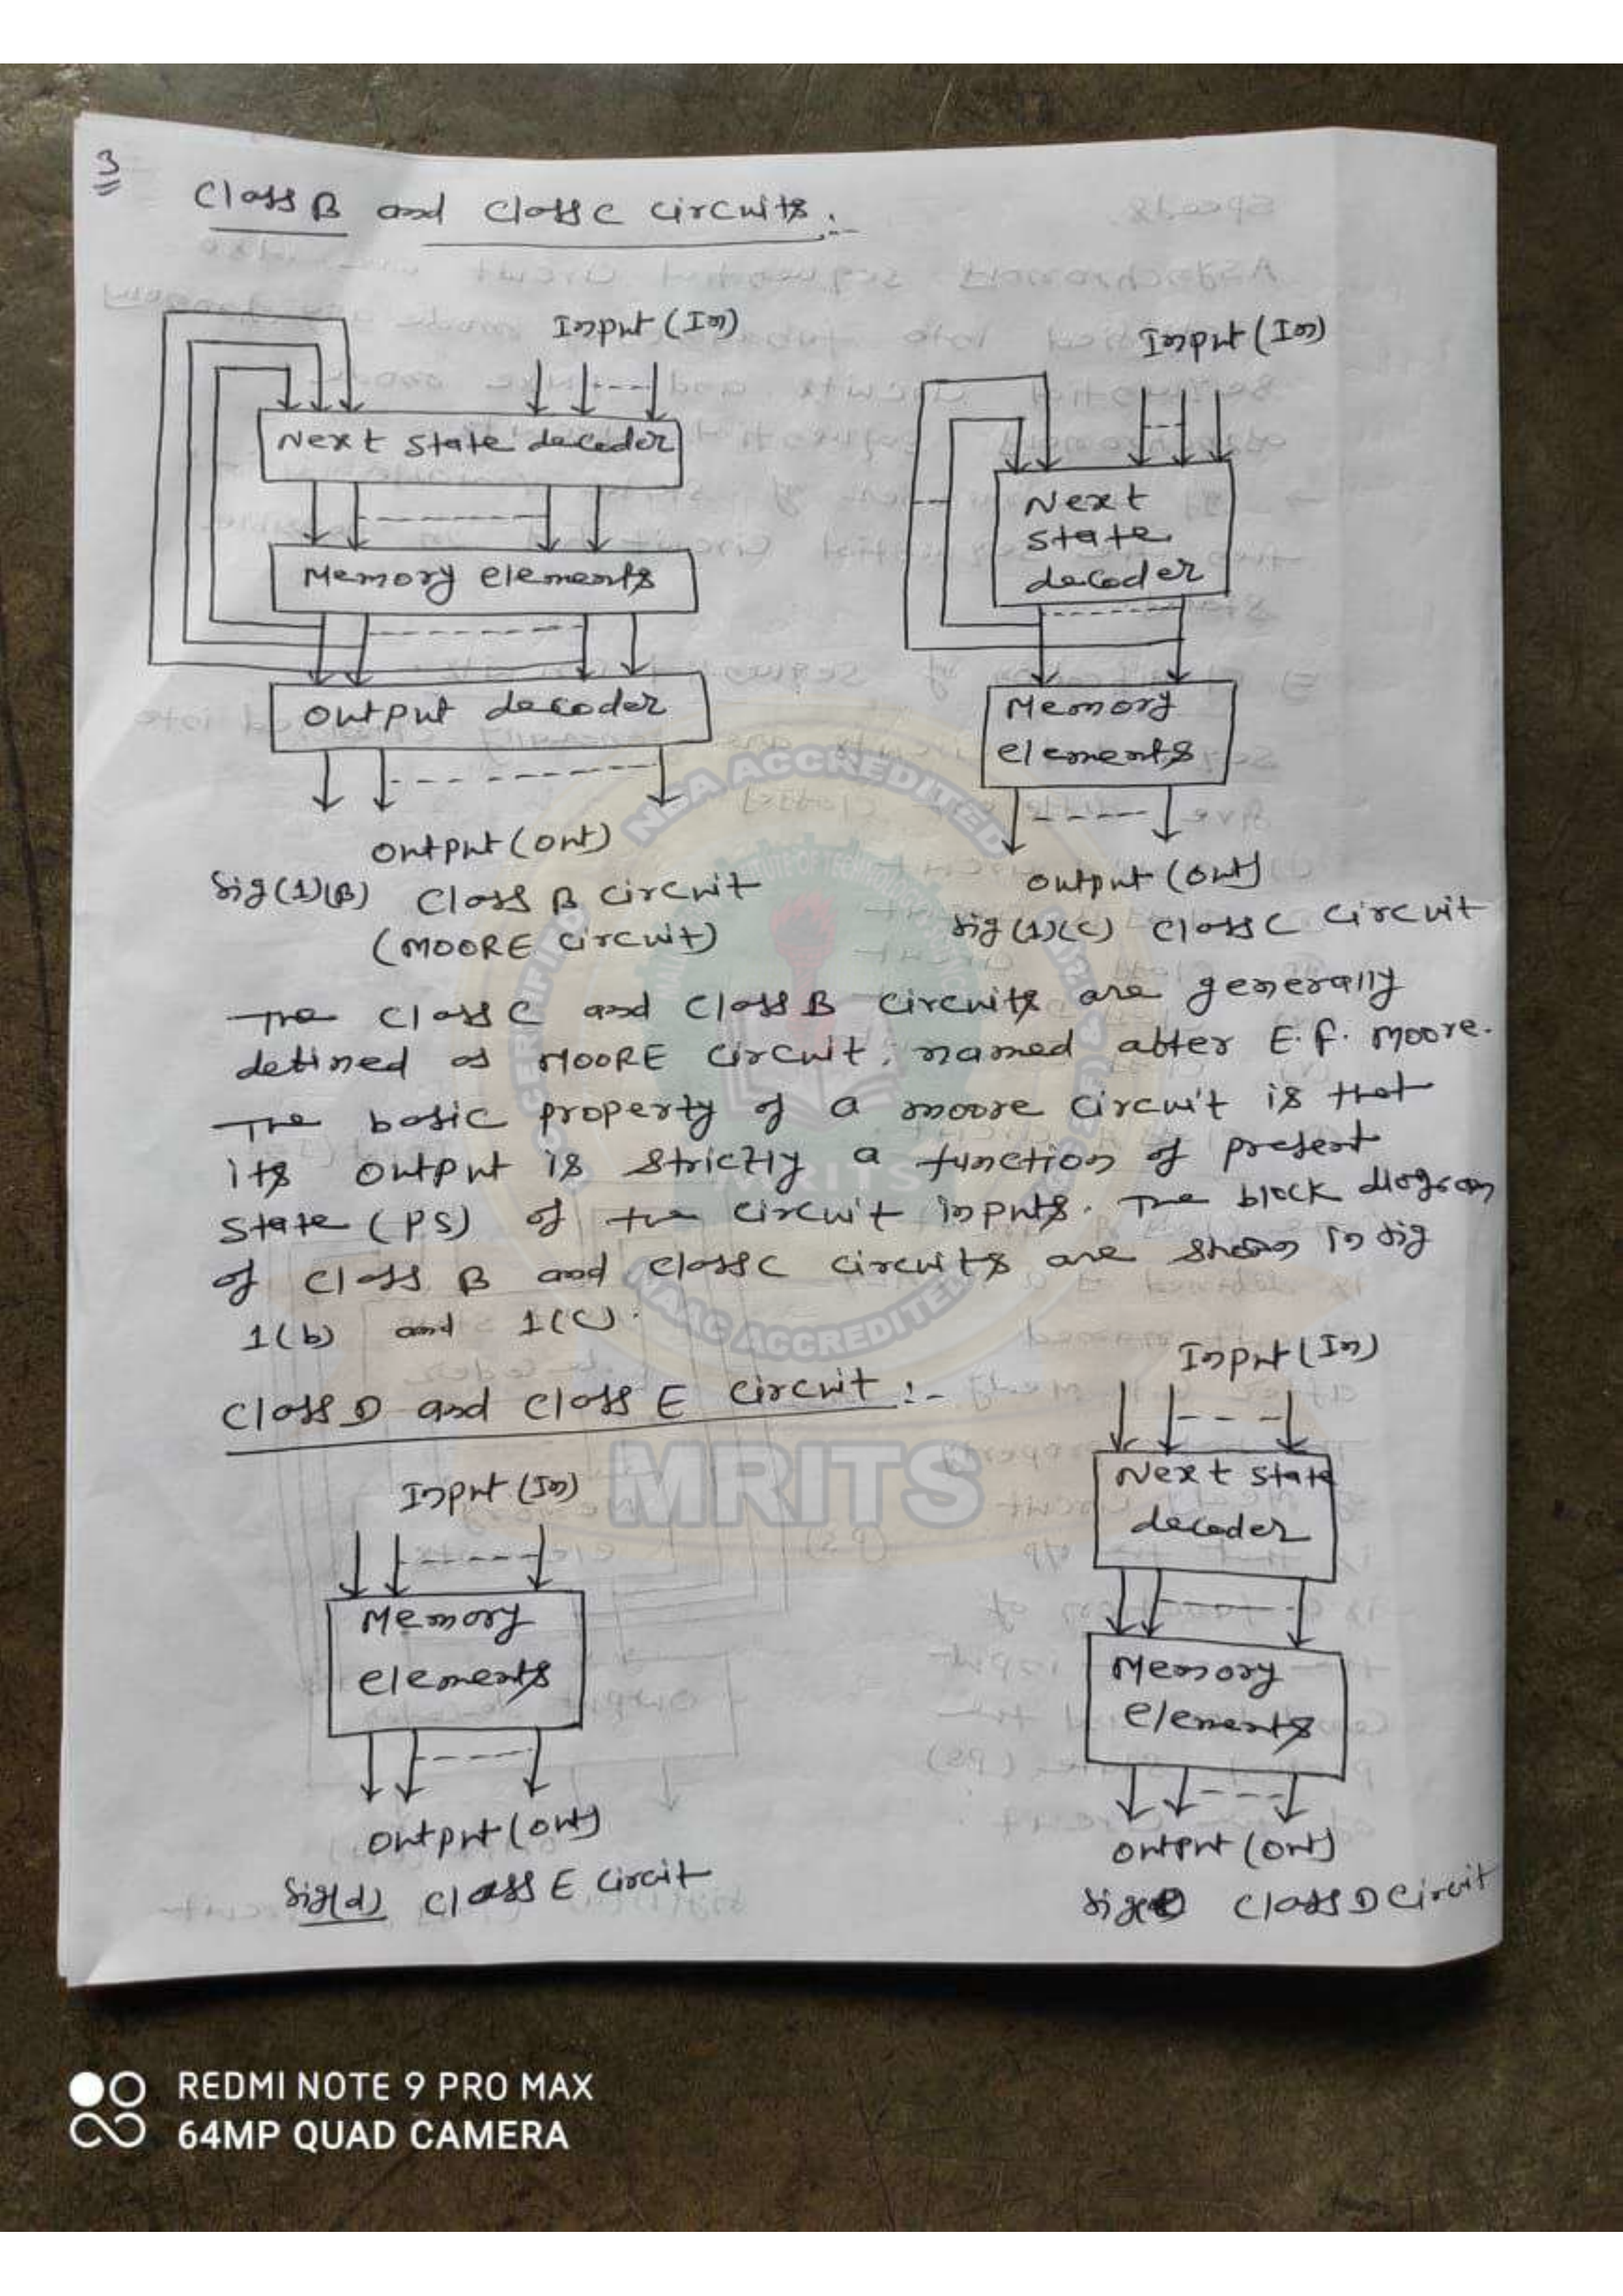 3
Class B and Class C circuits:-
Input (In)
Next state decoder
Memory elements
Output decoder
Output (out)
fig (1)(B) Class B circuit
(MOORE circuit)
Input (In)
Next
state
decoder
Memory
elements
Output (out)
fig (1)(C) Class C circuit
The class C and class B circuits are generally
defined as MOORE circuit, named after E.F. Moore.
The basic property of a moore circuit is that
its output is strictly a function of present
state (PS) of the circuit inputs. The block diagram
of class B and class C circuits are shown in fig
1(b) and 1(C).
Class D and class E circuit :-
Input (In)
Memory
elements
Output (out)
fig(d) Class E circuit
Input (In)
Next state
decoder
Memory
elements
Output (out)
fig Class D Circuit
NBA ACCREDITED
NAAC ACCREDITED
MRITS
MRITS
REDMI NOTE 9 PRO MAX
64MP QUAD CAMERA